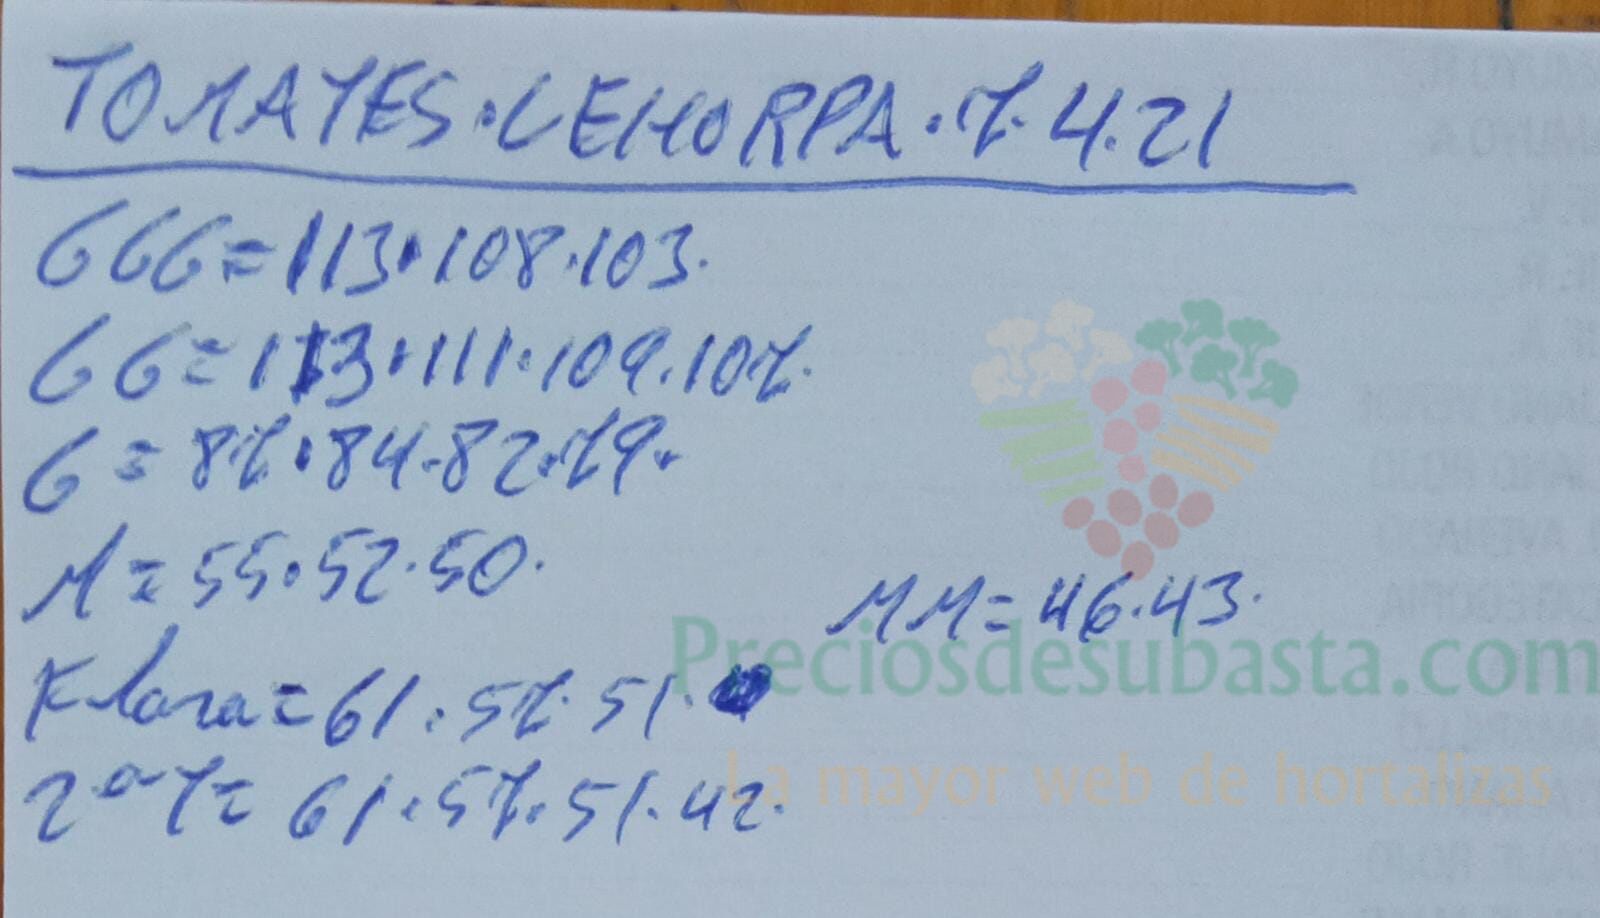 TOMATES.CEHORPA.7.4.21
GGG=113.108.103.
GG=113.111.109.107.
G=87.84.82.79.
M=55.52.50.
MM=46.43.
Flora=61.57.51.
2ªT=61.57.51.42.
Preciosdesubasta.com
La mayor web de hortalizas